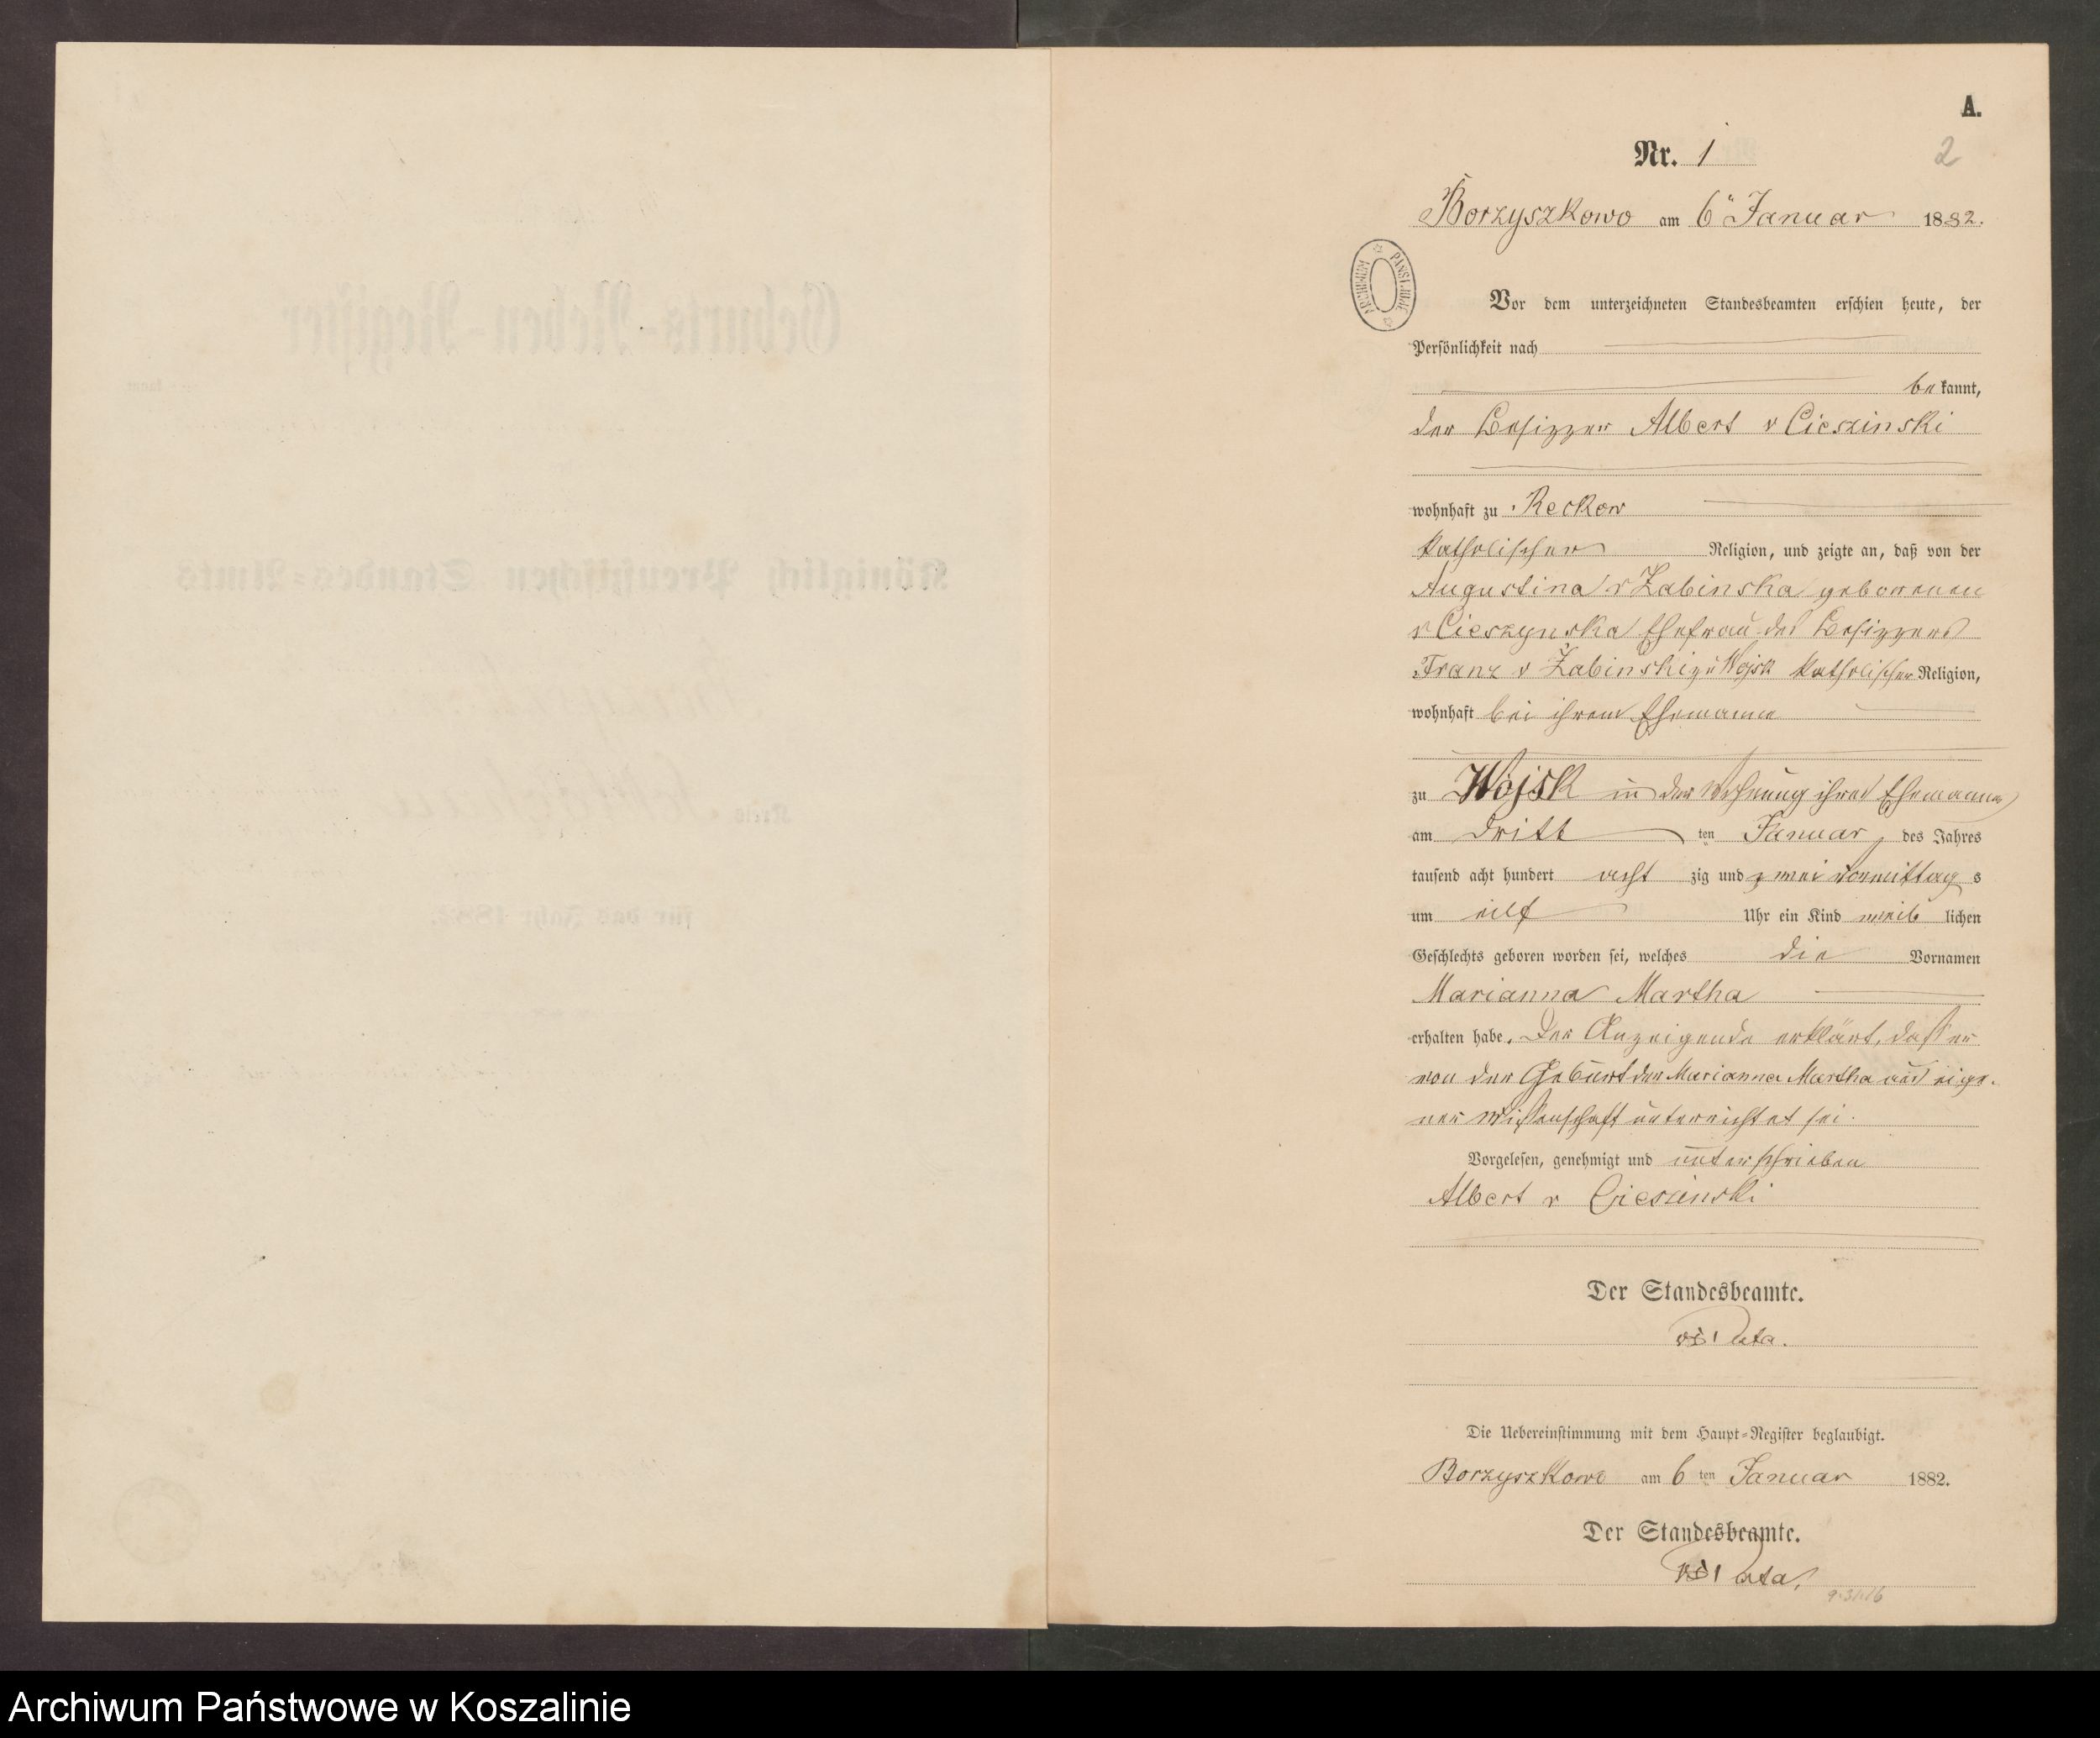 A.
Nr. 1
2
Borzyszkowo am 6ⁿ Januar 1882.
ARCHIWUM PAŃSTWOWE
Vor dem unterzeichneten Standesbeamten erschien heute, der
Persönlichkeit nach
bekannt,
der Besizzer Albert v Cieszinski
wohnhaft zu Reckow
katholischer Religion, und zeigte an, daß von der
Augustina v Zabinska geborenen
v Cieszynska Ehefrau des Besizzers
Franz v Żabinski zu Wojsk katholischer Religion,
wohnhaft bei ihrem Ehemanne
zu Wojsk in der Wohnung ihres Ehemannes
am dritt ten Januar des Jahres
tausend acht hundert acht zig und zwei Vormittag s
um eilf Uhr ein Kind weib lichen
Geschlechts geboren worden sei, welches die Vornamen
Marianna Martha
erhalten habe. Der Anzeigende erklärt, daß er
von der Geburt der Marianna Martha aus eige-
ner Wissenschaft unterrichtet sei.
Vorgelesen, genehmigt und unterschrieben
Albert v Ciesinski
Der Standesbeamte.
Die Uebereinstimmung mit dem Haupt-Register beglaubigt.
Borzyszkowo am 6 ten Januar 1882.
Der Standesbeamte.
Geburts-Neben-Register
Königlich Preußischen Standes-Amts
Kreis Schlochau
für das Jahr 1882.
Archiwum Państwowe w Koszalinie